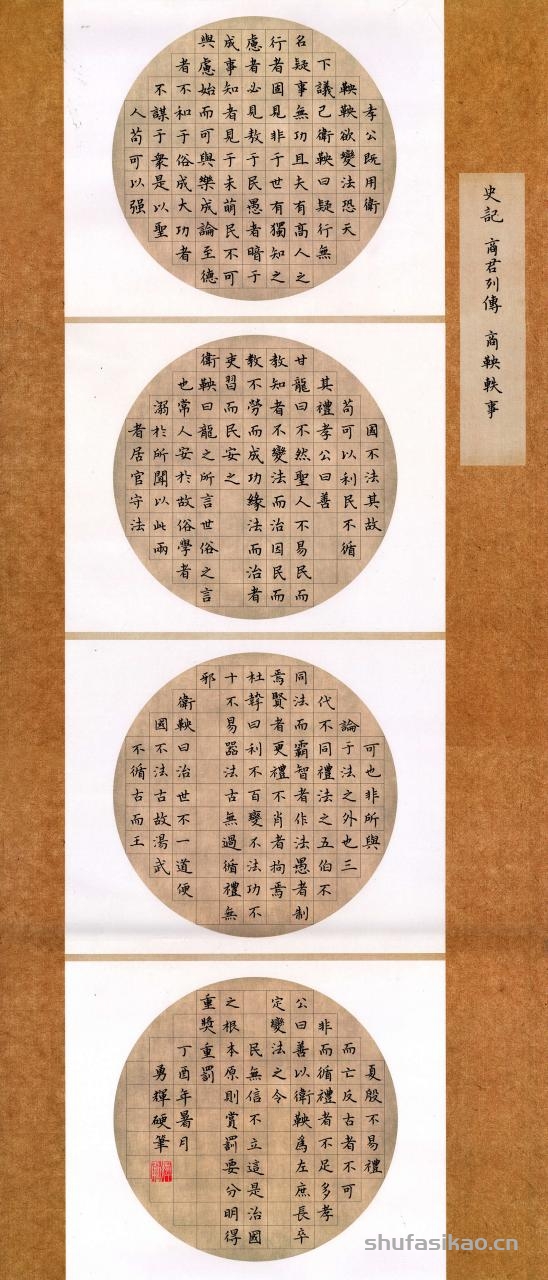 史記 商君列傳 商鞅軼事
孝公既用衛
鞅鞅欲變法恐天
下議己衛鞅曰疑行無
名疑事無功且夫有高人之
行者固見非于世有獨知之
慮者必見敖于民愚者暗于
成事知者見于未萌民不可
與慮始而可與樂成論至德
者不和于俗成大功者
不謀于衆是以聖
人苟可以强
國不法其故
苟可以利民不循
其禮孝公曰善
甘龍曰不然聖人不易民而
教知者不變法而治因民而
教不勞而成功緣法而治者
吏習而民安之
衛鞅曰龍之所言世俗之言
也常人安於故俗學者
溺於所聞以此兩
者居官守法
可也非所與
論于法之外也三
代不同禮法之五伯不
同法而霸智者作法愚者制
焉賢者更禮不肖者拘焉
杜摯曰利不百變不法功不
十不易器法古無過循禮無
邪
衛鞅曰治世不一道便
國不法古故湯武
不循古而王
夏殷不易禮
而亡反古者不可
非而循禮者不足多孝
公曰善以衛鞅爲左庶長卒
定變法之令
民無信不立這是治國
之根本原則賞罰要分明得
重獎重罰
丁酉年暑月
勇輝硬筆
shufasikao.cn